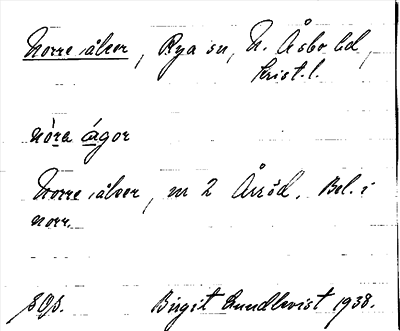 Norre ålver, Rya sn, N. Åsbo hd,
Krist. l.
nó̱ra á̱gor
Norre ålver, nr 2 Årröd. Bel. i
norr.
Birgit Lundkvist 1938.